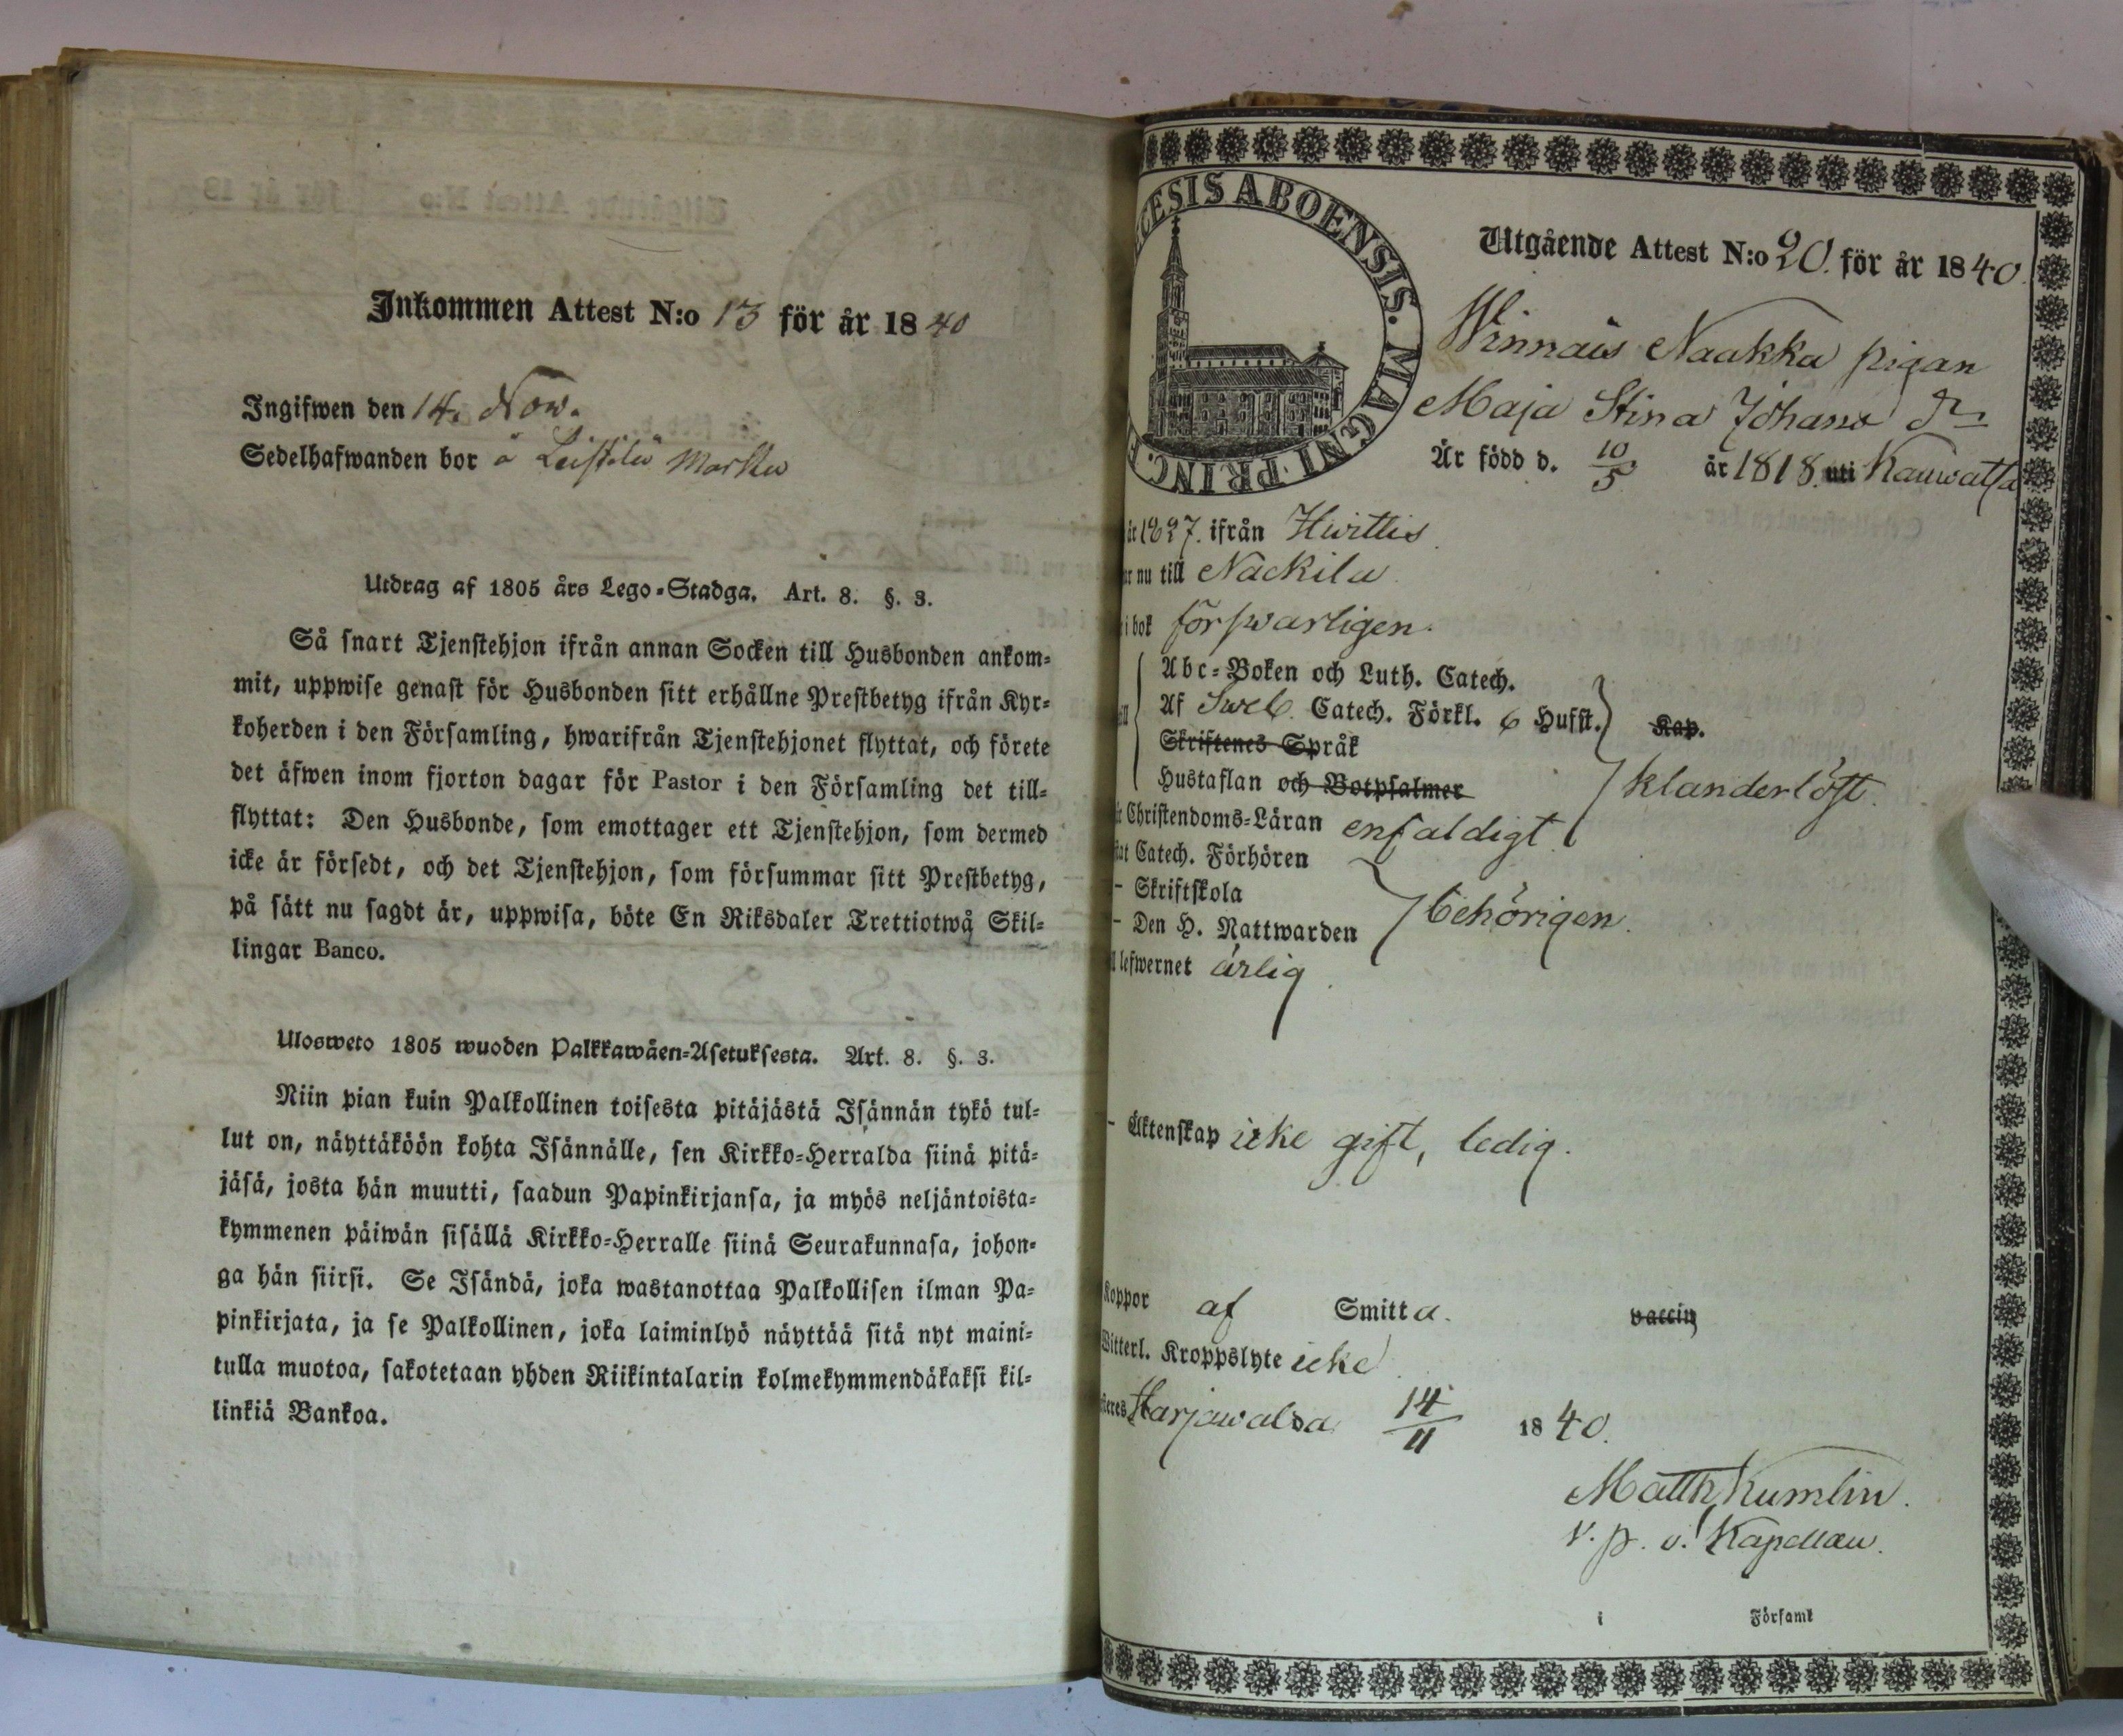 Inkommen Attest N:o 13 för år 1840
Ingifwen den 14. Now.
Sedelhafwanden bor å Leistilä Marttu
Utdrag af 1805 års Lego-Stadga. Art. 8. §. 3.
Så snart Tjenstehjon ifrån annan Socken till Husbonden ankom-
mit, uppwise genast för Husbonden sitt erhållne Prestbetyg ifrån Kyr-
koherden i den Församling, hwarifrån Tjenstehjonet flyttat, och förete
det äfwen inom fjorton dagar för Pastor i den Församling det till-
flyttat: Den Husbonde, som emottager ett Tjenstehjon, som dermed
icke är försedt, och det Tjenstehjon, som försummar sitt Prestbetyg,
på sätt nu sagdt är, uppwisa, böte En Riksdaler Trettiotwå Skil-
lingar Banco.
Ulosweto 1805 wuoden Palkkawäen-Asetuksesta. Art. 8. §. 3.
Niin pian kuin Palkollinen toisesta pitäjästä Isännän tykö tul-
lut on, näyttäköön kohta Isännälle, sen Kirkko-Herralda siinä pitä-
jäsä, josta hän muutti, saadun Papinkirjansa, ja myös neljäntoista-
kymmenen päiwän sisällä Kirkko-Herralle siinä Seurakunnasa, johon-
ga hän siirsi. Se Isändä, joka wastanottaa Palkollisen ilman Pa-
pinkirjata, ja se Palkollinen, joka laiminlyö näyttää sitä nyt maini-
tulla muotoa, sakotetaan yhden Riikintalarin kolmekymmendäkaksi kil-
linkiä Bankoa.
ECESIS ABOENSIS. MAGNI PRINC. F
Utgående Attest N:o 20. för år 1840.
Winnais Naakka pigan
Maja Stina Johans Dr
Är född d. 10/5 år 1818. uti Kauwatsa
år 1837. ifrån Hwittis
nu till Nackila
i bok förswarligen.
Abc-Boken och Luth. Catech.
Af Sweb. Catech. Förkl. 6 Hufst. Kap.
Skriftenes Språk
Hustaflan och Botpsalmer klanderlöst.
Christendoms-Läran enfaldigt
Catech. Förhören
- Skriftskola
- Den H. Nattwarden behörigen.
lefwernet ärlig
- Äktenskap icke gift, ledig.
Koppor af Smitta. vaccin
Witterl. Kroppslyte icke
Harjawalda 14/11 1840.
Matth Kumlin.
v. p. v. Kapellan.
i Församl